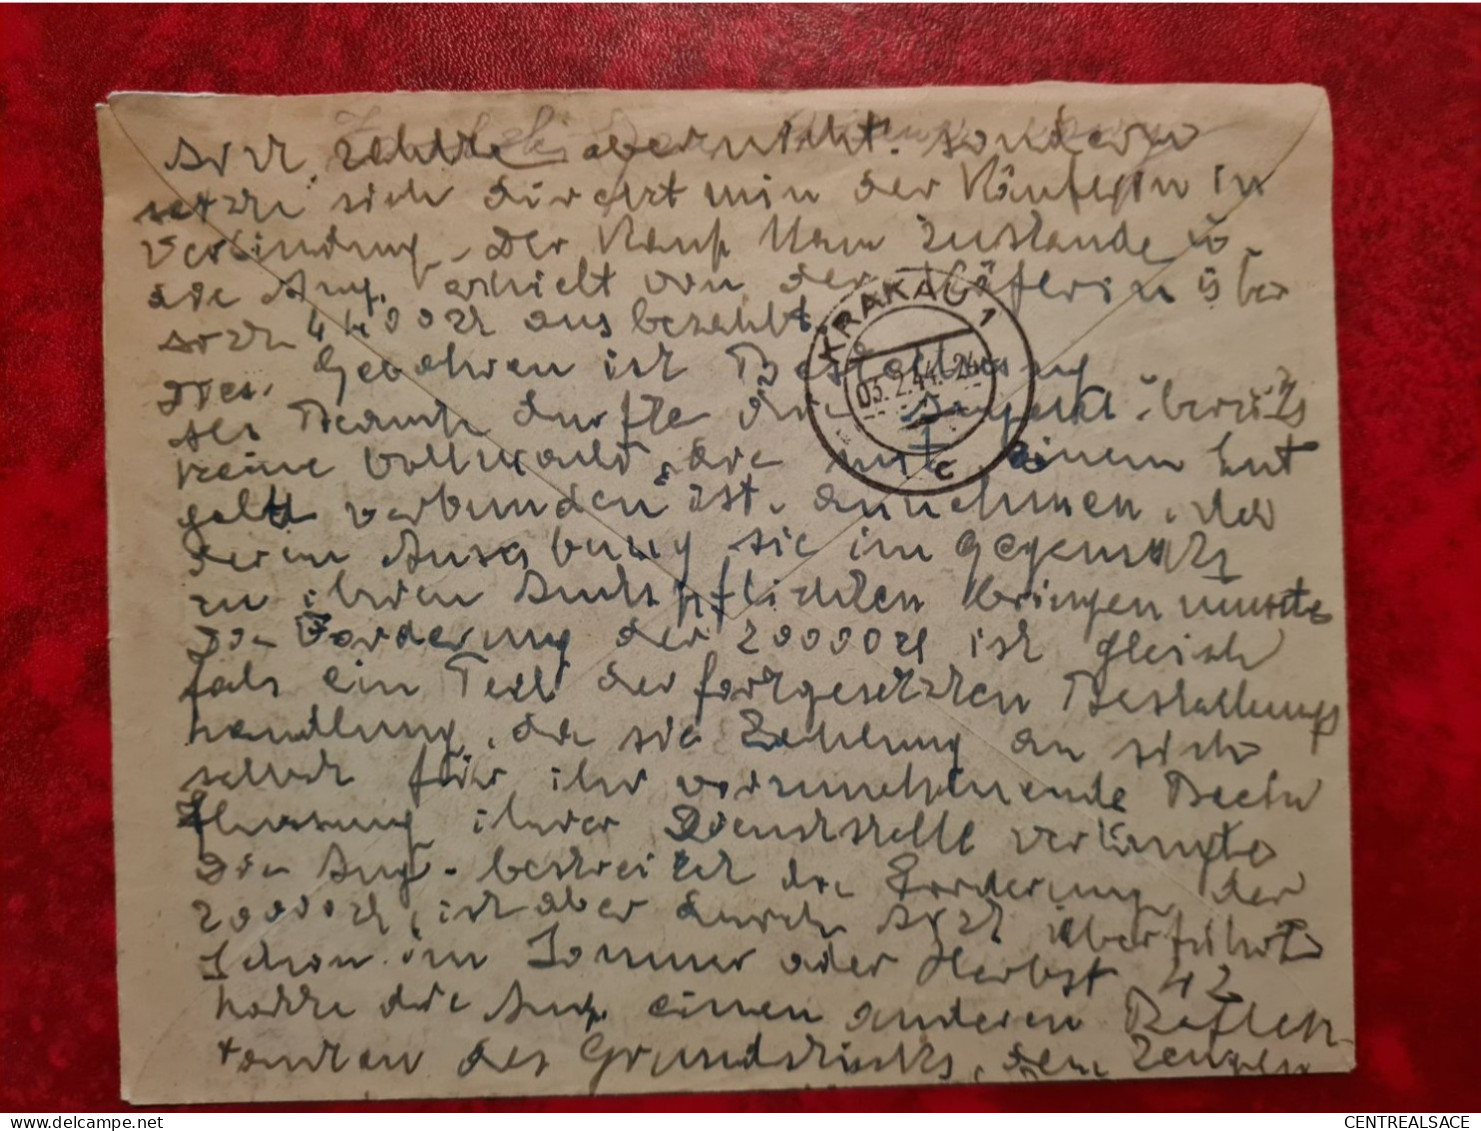 zahlte aber nicht. sondern
setzte sich direkt min der Käuferin in
Verbindung. Der Kauf kam zustande u.
die Ang. erhielt von der Käuferin über
4400 Zl ausbezahlt.
Gebahren ist Bestechung
Als Beamtin durfte die Angekl. bereits
keine Vollmacht, die mit einem Ent
geld verbunden ist, annehmen, da
deren Ausübung sie im Gegensatz
zu ihren Amtspflichten bringen musste
Die Forderung der 20000 Zl ist gleich
falls ein Teil der fortgesetzten Bestechungs
handlung, da sie Zahlung an sich
selbst für ihr vorzunehmende Beein
flussung ihrer Dienststelle verlangte
Die Ang. bestreitet die Forderung der
20000 Zl, ist aber durch überführt
Schon im Sommer oder Herbst 42
hatte die Ang. einen anderen Reflek-
tanten des Grundstücks, dem Zeugen
KRAKAU 1
03.2.44.-24
c
CENTREALSACE